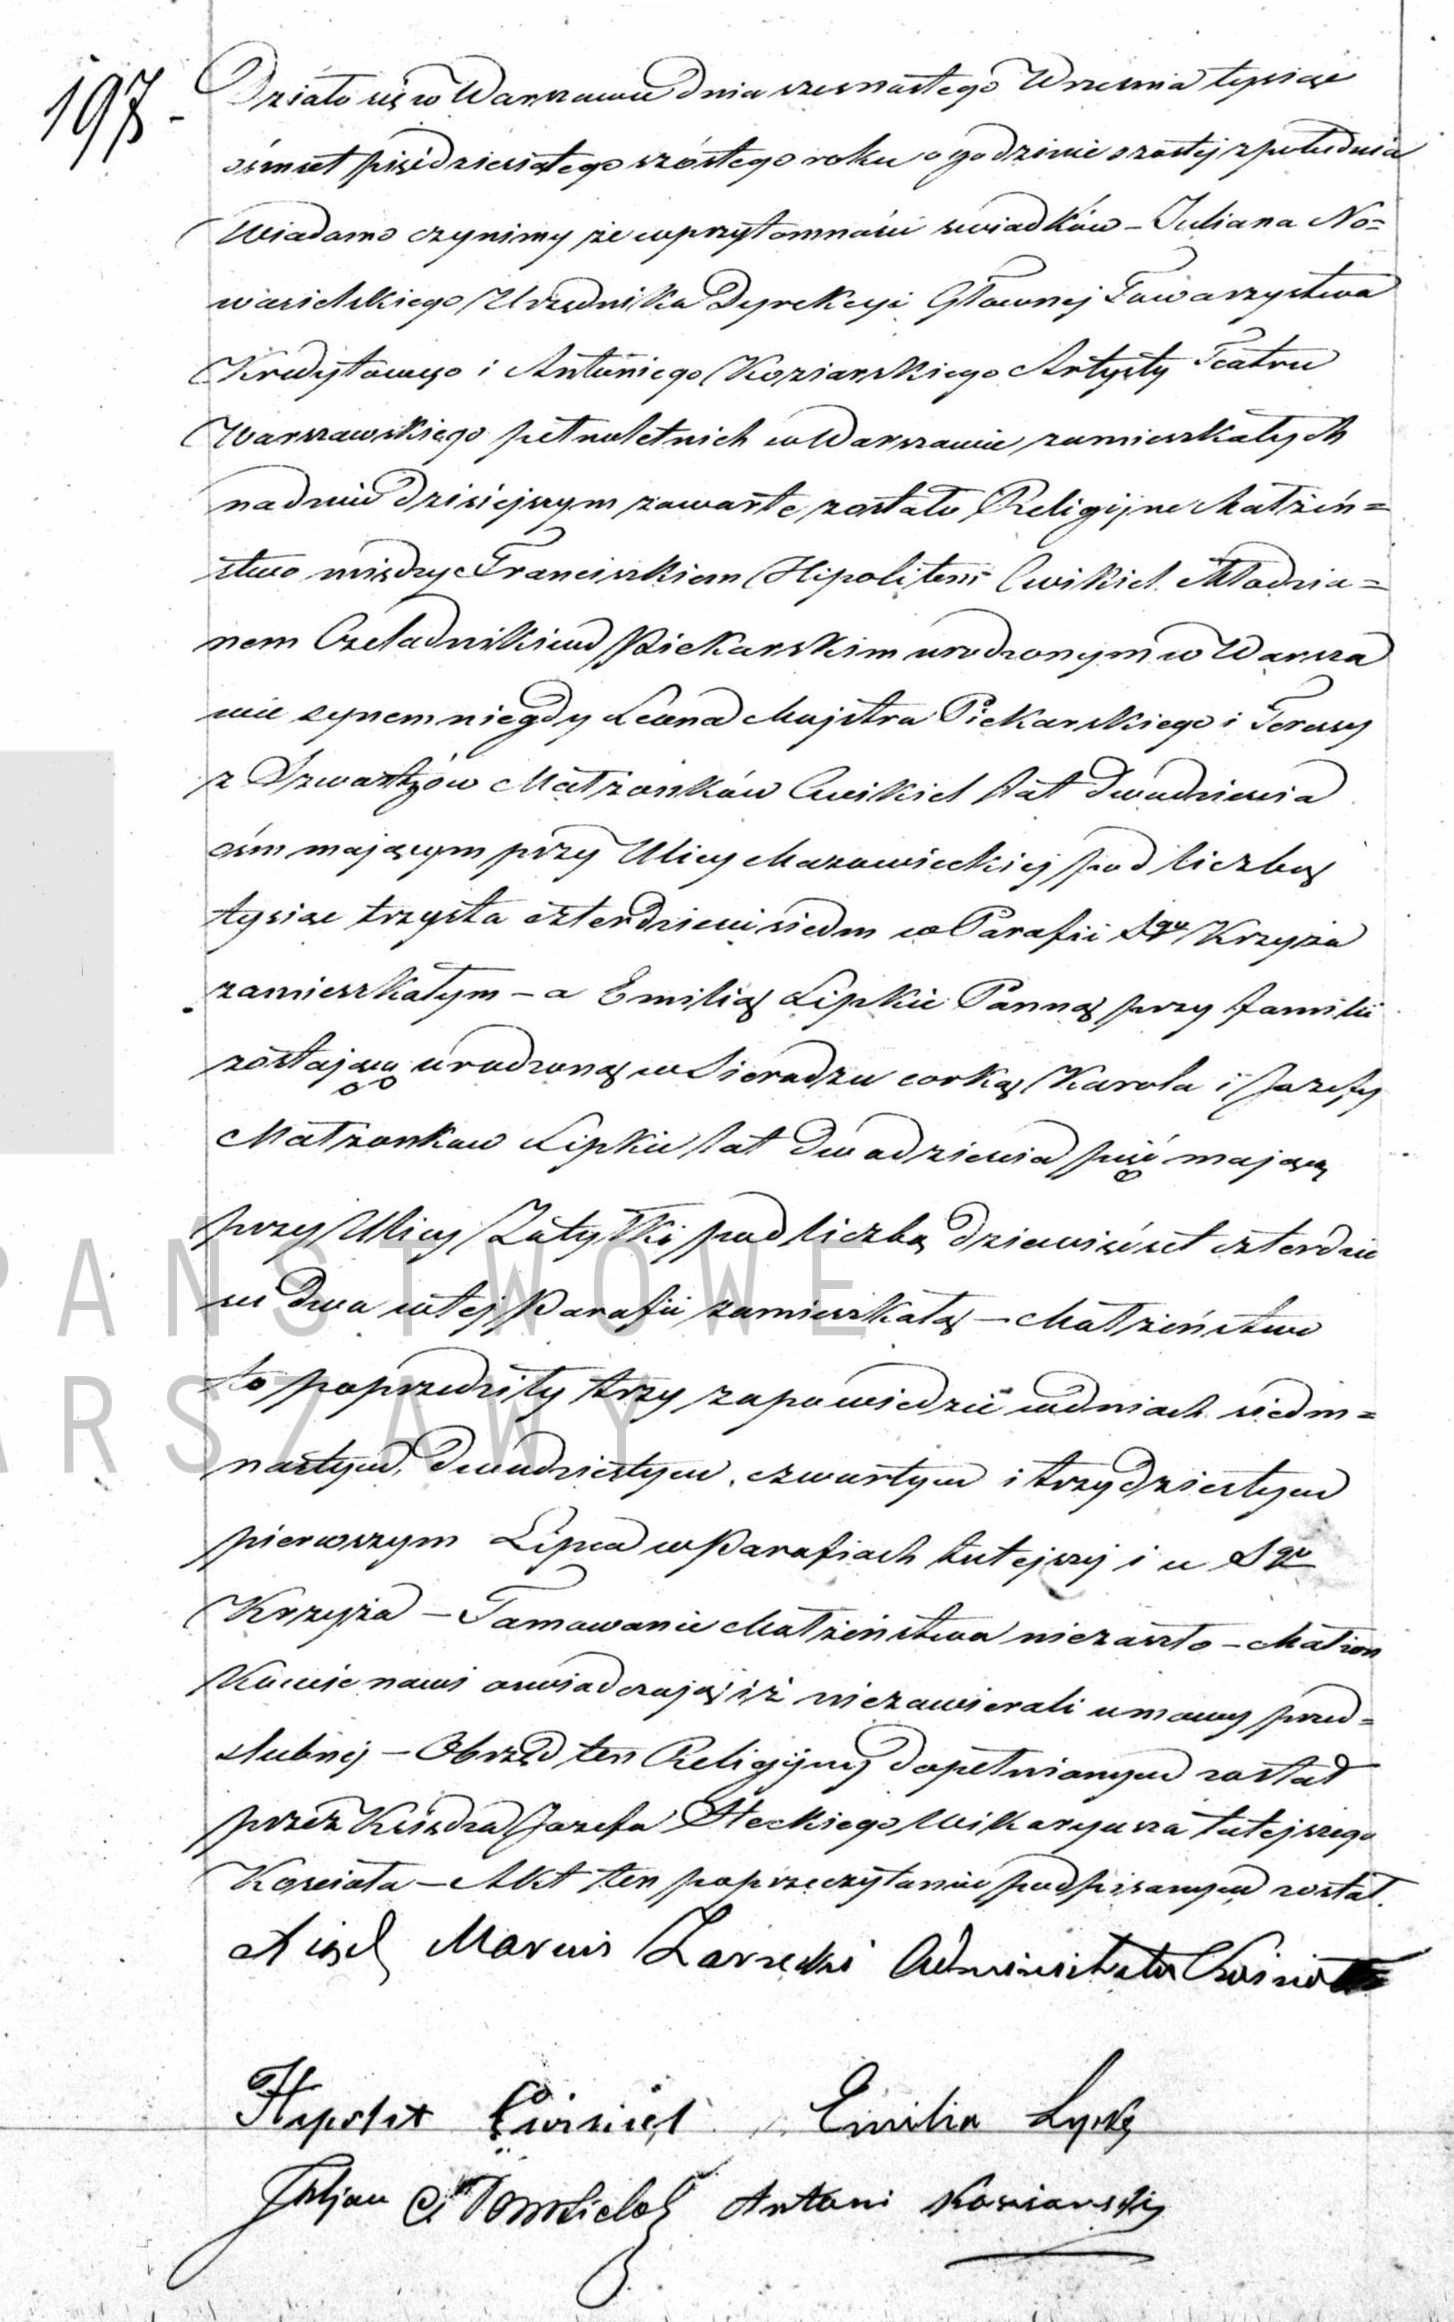 197.
Działo się w Warszawie dnia szesnastego Wrzesnia tysiąc
ośmset pięćdziesiątego szóstego roku o godzinie szóstej z południa
Wiadomo czynimy że w przytomności swiadków – Juliana No=
wosielskiego Urzędnika Dyrekcyi Głównej Towarzystwa
Kredytowego i Antoniego Koziarskiego Artysty Teatru
Warszawskiego pełnoletnich w Warszawie zamieszkałych
na dniu dzisiejszym zawarte zostało Religijne Małżeń=
stwo między Franciszkiem Hipolitem Cwikiel Młodzia=
nem Czeladnikiem Piekarskim urodzonym w Warsza
wie synem niegdy Leona Majstra Piekarskiego i Teresy
z Szwartzów Małżonków Cwikiel lat dwadzieścia
ośm mającym przy Ulicy Mazowieckiej pod liczbą
tysiąc trzysta czterdzieści siedm w Parafii Sgo Krzyża
zamieszkałym – a Emilią Lipkie Panną przy familii
zostającą urodzoną w Sieradzu corką Karola i Jozefy
Małżonkow Lipkie lat dwadzieścia pięć mającą
przy Ulicy Żatylki pod liczbą dziewięćset czterdzie
sci dwa w tej Parafii zamieszkałą – Małżeństwo
to poprzedziły trzy zapowiedzie w dniach siedm=
nastym, dwudziestym czwartym i trzydziestym
pierwszym Lipca w Parafiach tutejszej i u Sgo
Krzyża – Tamowanie Małżeństwa niezaszło – Małżon
kowie nowi oswiadczają iż niezawierali umowy przed=
slubnej – Obrzęd ten Religijny dopełnionym został
przez Księdza Jozefa Steckiego Wikaryusza tutejszego
Kościoła – Akt ten po przeczytaniu podpisanym został.
Xiądz Marcin Zarzecki Administrator Kościoła
Hipolit Cwikiel Emilia Lipke
Juljan Nowosielski Antoni Koziarski
PAŃSTWOWE
ARSZAWY